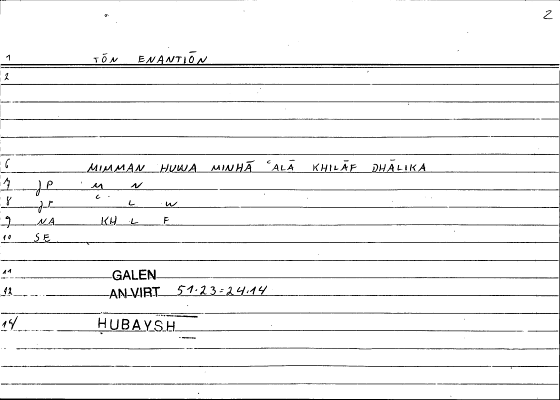 2
1 TŌN ENANTIŌN
2
6 MIMMAN HUWA MINHĀ ʿALĀ KHILĀF DHĀLIKA
7 JP M N
8 JP ʿ L W
9 NA KH L F
10 SE
11 GALEN
12 AN.VIRT 51.23=24.14
14 HUBAYSH